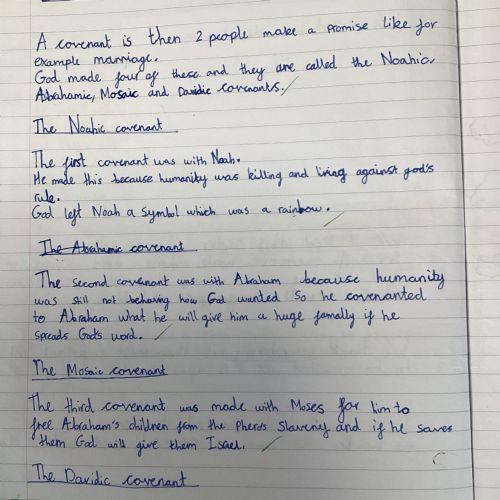 A covenant is then 2 people make a promise like for
example marriage.
God made four of these and they are called the Noahic,
Abrahamic, Mosaic and Davidic covenants.
The Noahic covenant
The first covenant was with Noah.
He made this because humanity was killing and living against god's
rule.
God left Noah a symbol which was a rainbow.
The Abrahamic covenant
The second covenant was with Abraham because humanity
was still not behaving how God wanted so he covenanted
to Abraham what he will give him a huge famally if he
spreads God's word.
The Mosaic covenant
The third covenant was made with Moses for him to
free Abraham's children from the Pheros slavery and if he saves
them God will give them Israel.
The Davidic covenant